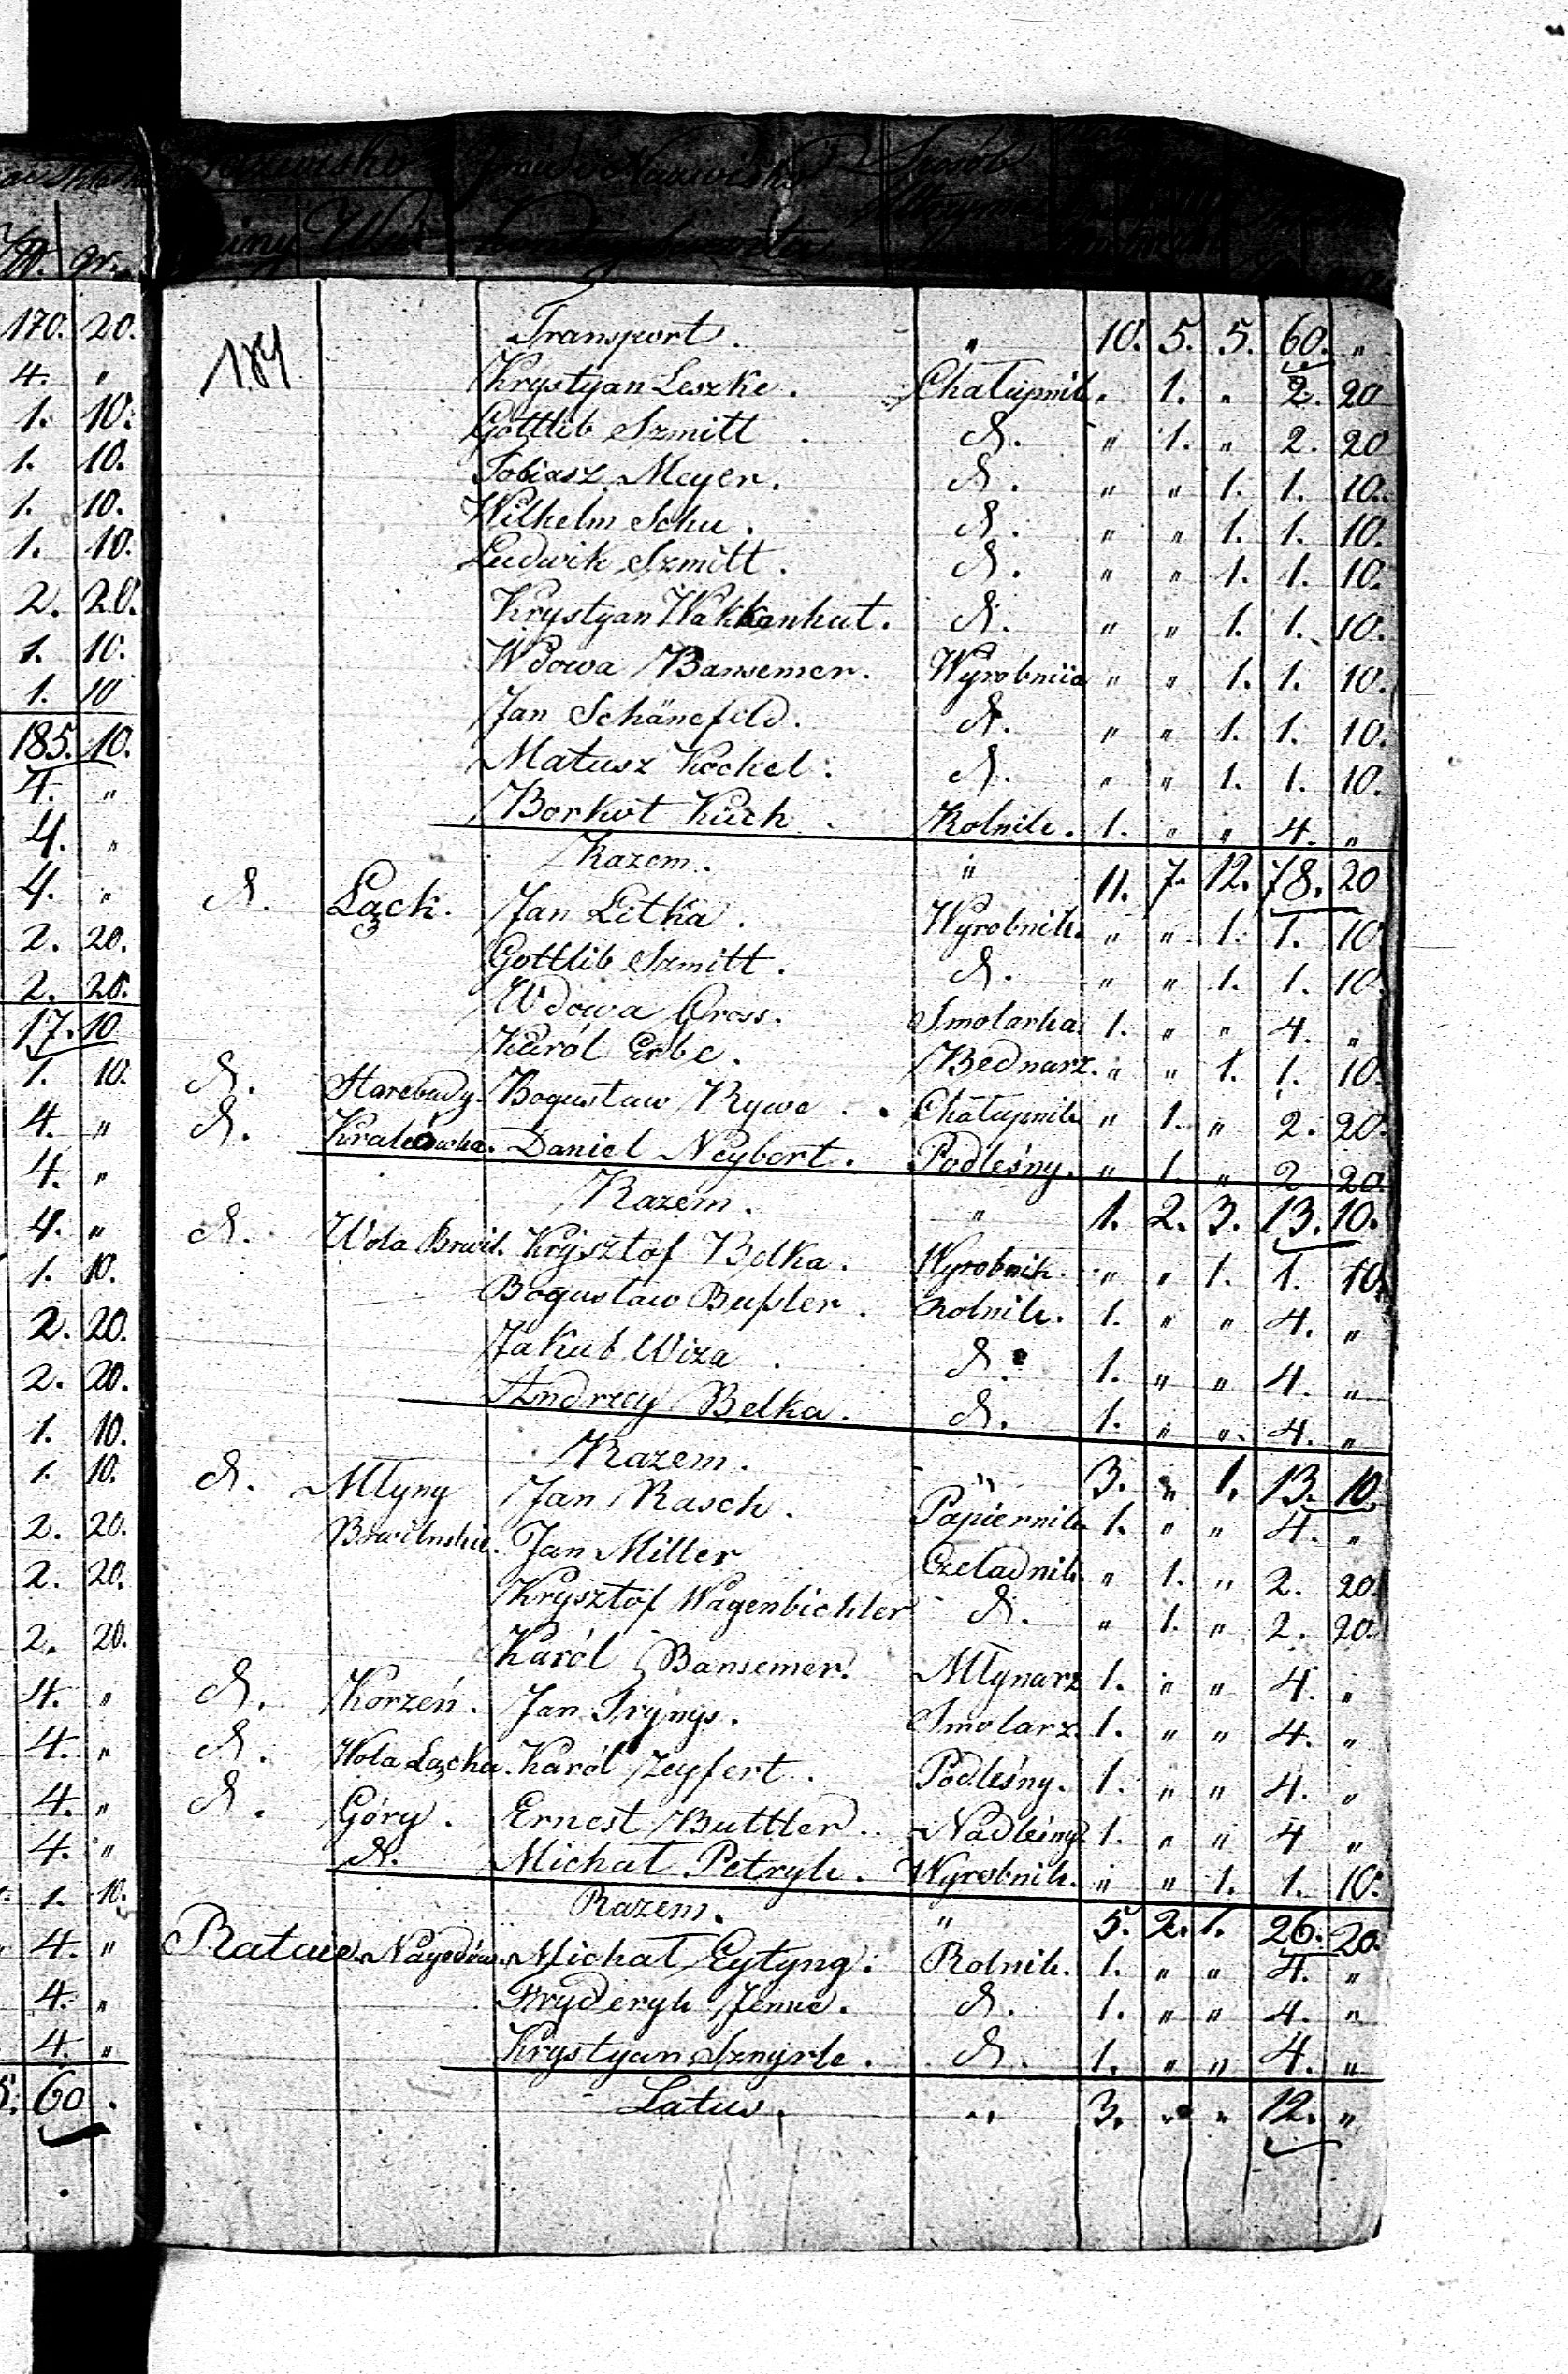 Złp. gr.
170. 20.
4. "
1. 10.
1. 10.
1. 10.
1. 10.
2. 20.
1. 10.
1. 10
185. 10.
4. "
4. "
4. "
2. 20.
2. 20.
17. 10
1. 10.
4. "
4. "
4. "
1. 10.
2. 20.
2. 20.
1. 10.
1. 10.
2. 20.
2. 20.
2. 20.
4. "
4. "
4. "
4. "
1. 10.
4. "
4. "
4. "
60.
Imie i Nazwisko Sposób
184
Transport. " 10. 5. 5. 60. "
Krystyan Leszke. Chałupnik " 1. " 2. 20
Gottlib Szmitt. d. " 1. " 2. 20
Tobiasz Meyer. d. " " 1. 1. 10.
Wilhelm Schu. d. " " 1. 1. 10.
Ludwik Szmitt. d. " " 1. 1. 10.
Krystyan Wakkenhut. d. " " 1. 1. 10.
Wdowa Bansemer. Wyrobnica " " 1. 1. 10.
Jan Schänefeld. d. " " 1. 1. 10.
Matusz Kockel. d. " " 1. 1. 10.
Borkwt Kuch. Rolnik. 1. " " 4. "
Razem. " 11. 7. 12. 78. 20
d. Łąck. Jan Litka. Wyrobnik. " " 1. 1. 10
Gottlib Szmitt. d. " " 1. 1. 10.
Wdowa Gross. Smolarka 1. " " 4. "
Karól Erbe. Bednarz. " " 1. 1. 10.
d. Starebudy. Bogusław Rywe. Chałupnik " 1. " 2. 20.
d. Daniel Neybert. Podleśny. " 1. " 2 20.
Razem. " 1. 2. 3. 13. 10.
d. Wola Brwil. Krysztof Belka. Wyrobnik. " " 1. 1. 10.
Bogusław Bußler. Rolnik. 1. " " 4. "
Jakub Wiza. d. 1. " " 4. "
Andrzey Belka. d. 1. " " 4. "
Razem. " 3. " 1. 13. 10.
d. Młyny Jan Rasch. Papiernik 1. " " 4. "
Brwilnskie. Jan Miller Czeladnik. " 1. " 2. 20.
Krysztof Wagenbichler d. " 1. " 2. 20.
Karól Bansemer. Młynarz 1. " " 4. "
d. Korzeń. Jan Trynys. Smolarz. 1. " " 4. "
d. Wola Łącka. Karól Zeyfert. Podleśny. 1. " " 4. "
d. Góry. Ernest Buttler. Nadleśny 1. " " 4 "
d. Michał Petryk. Wyrobnik. " " 1. 1. 10.
Razem. " 5. 2. 1. 26. 20.
Rataie. Michał Eytyng. Rolnik. 1. " " 4. "
Fryderyk Jenne. d. 1. " " 4. "
Krystyan Sznyrle. d. 1. " " 4. "
Latus. " 3. " " 12. "